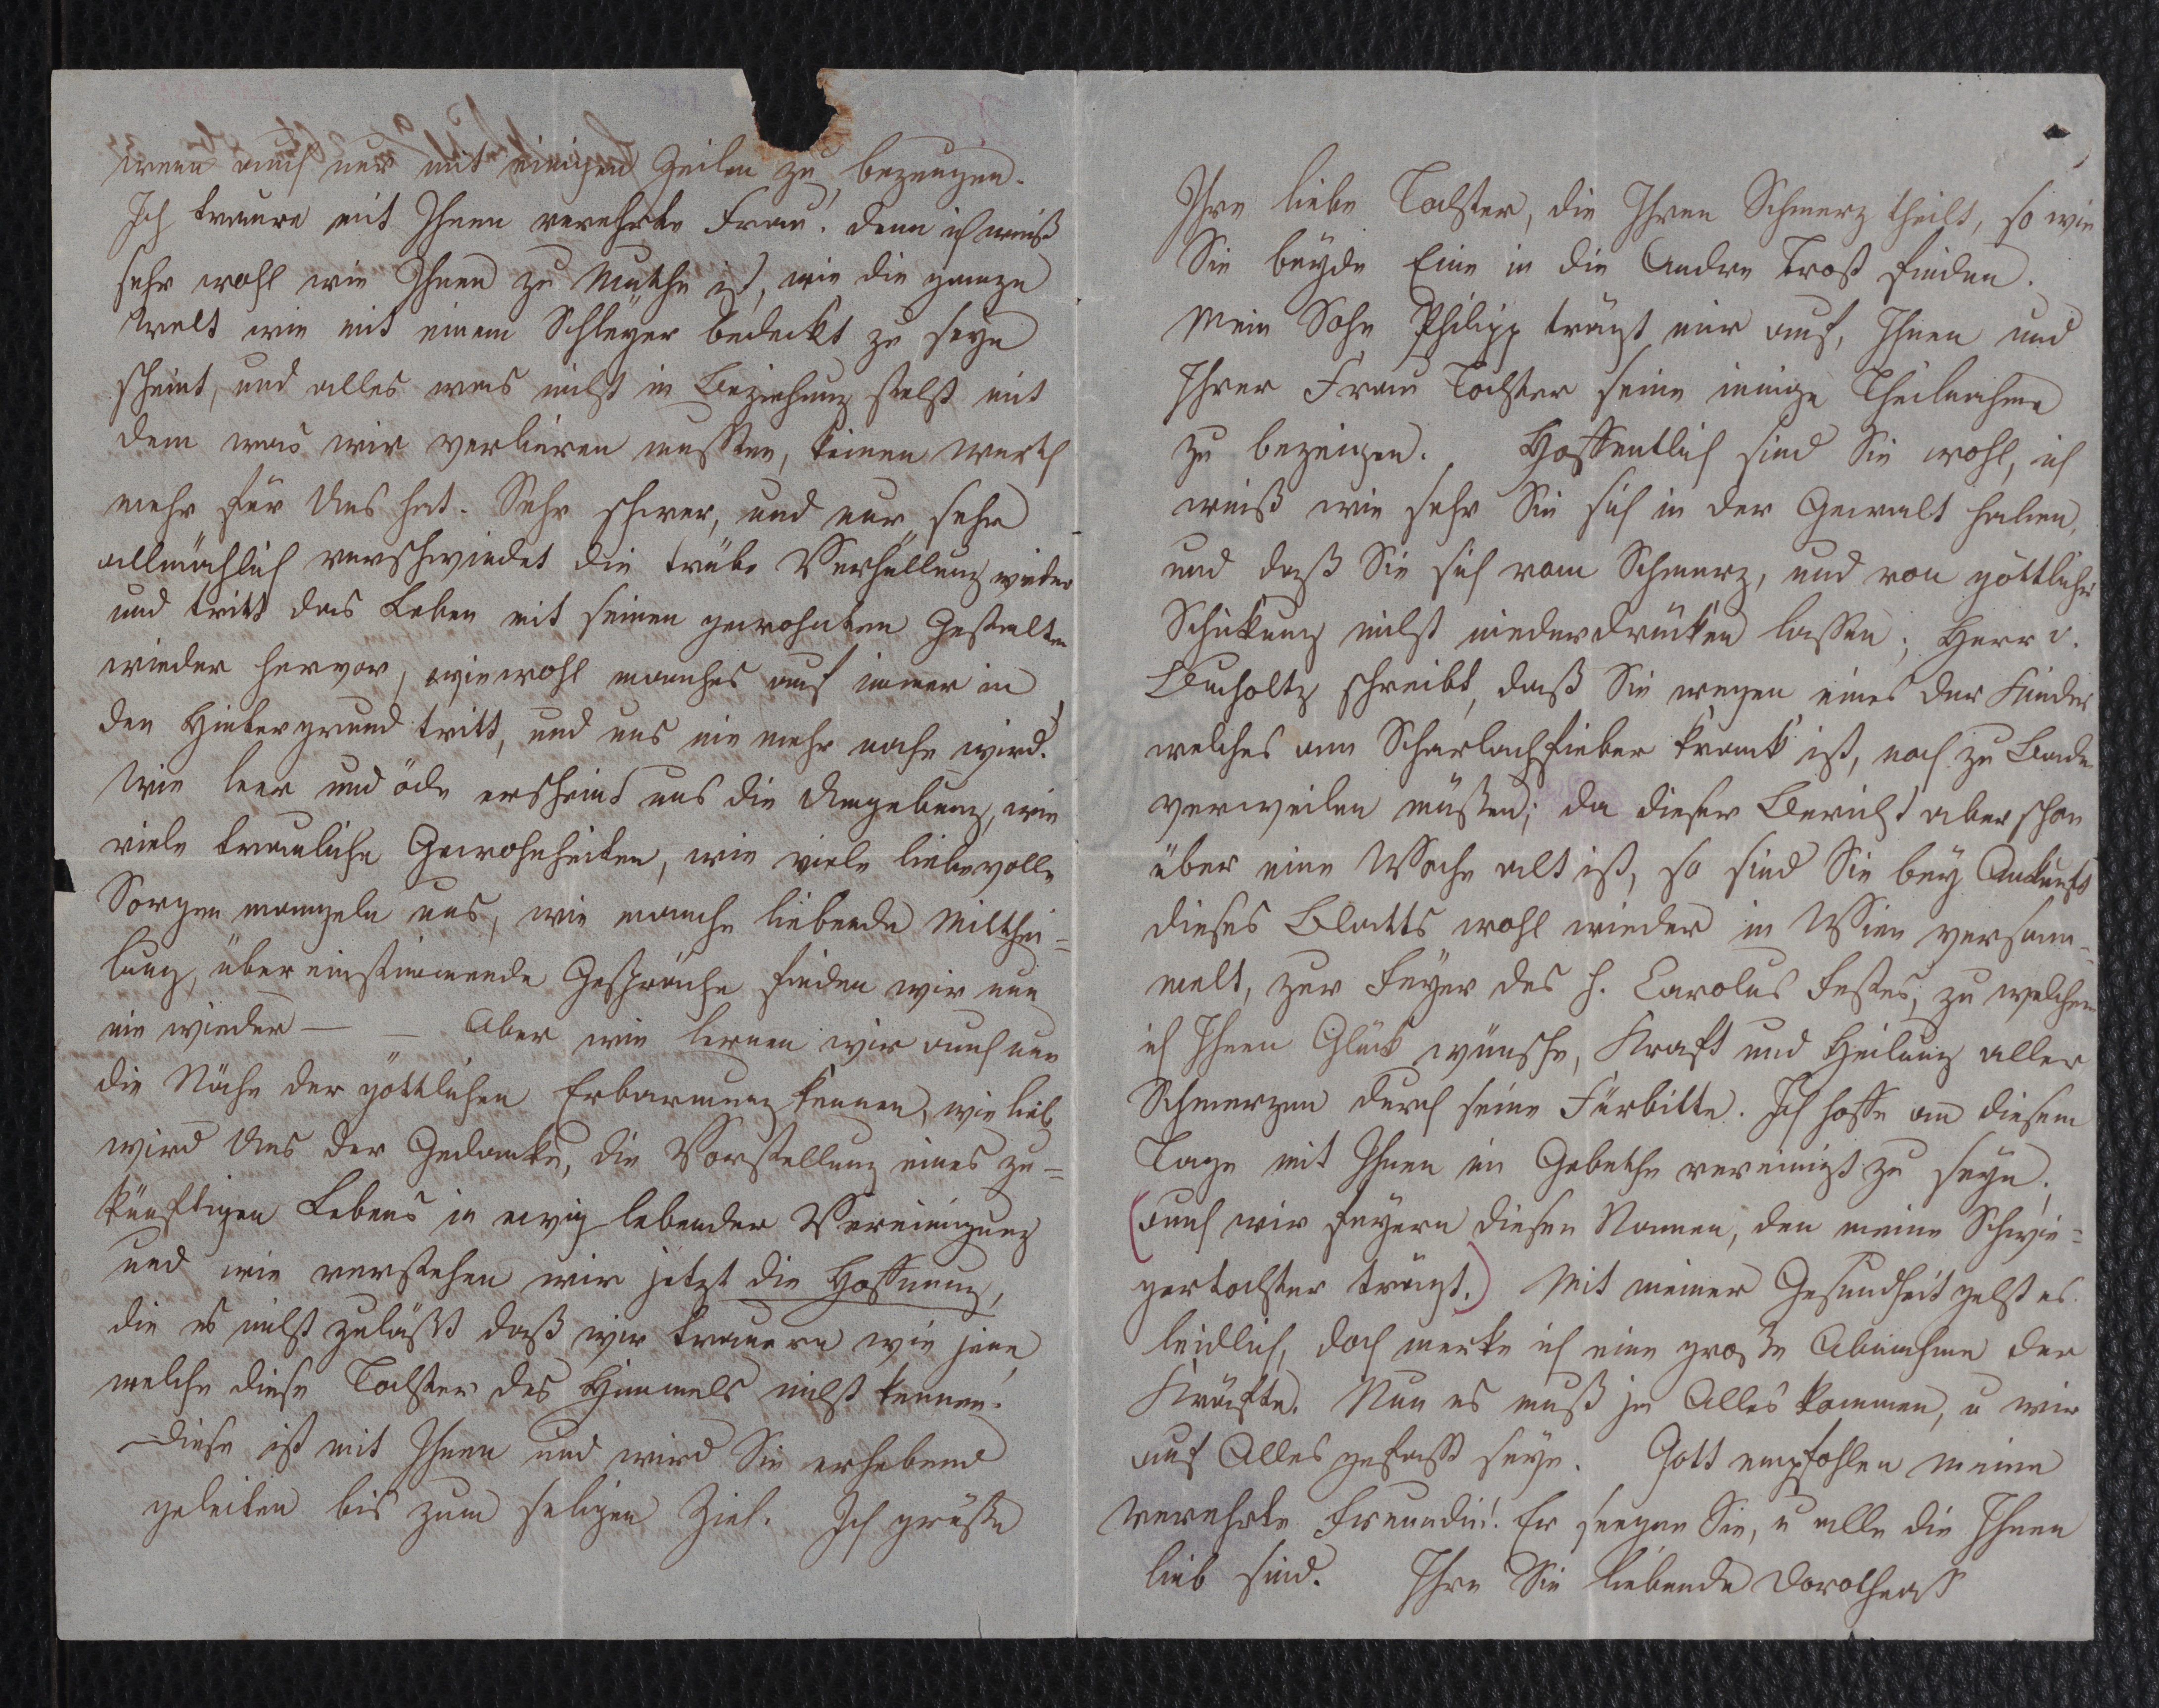 wenn auch nur mit einigen Zeilen zu bezeugen.
Ich traure mit Ihnen verehrte Frau! denn ich weiß
sehr wohl wie Ihnen zu Muthe ist, wie die ganze
Welt wie mit einem Schleyer bedeckt zu seyn
scheint, und alles was nicht in Beziehung steht mit
dem was wir verlieren mußten, keinen Werth
mehr für Uns hat. Sehr schwer, und nur sehr
allmächlich verschwindet die trübe Verhüllung wieder
und tritt das Leben mit seinen gewohnten Gestalten
wieder hervor, wiewohl manches auf immer in
den Hintergrund tritt, und uns nie mehr nahe wird.
Wie leer und öde erscheint uns die Umgebung, wie
viele trauliche Gewohnheiten, wie viele liebevolle
Sorgen mangeln uns, wie manche liebende Mitthei=
lung, übereinstimmende Gespräche finden wir nun
nie wieder — — Aber wie lernen wir auch nun
die Nähe der göttlichen Erbarmung kennen, wie lieb
wird Uns der Gedanke, die Vorstellung eines zu=
künftigen Lebens in ewig lebender Vereinigung
und wie verstehen wir jetzt die Hoffnung,
die es nicht zuläßt daß wir trauern wie jene
welche diese Tochter des Himmels nicht kennen.
Diese ist mit Ihnen und wird Sie erhebend
geleiten bis zum seligen Ziel. Ich grüße
Ihre liebe Tochter, die Ihren Schmerz theilt, so wie
Sie beyde Eine in die Andre Trost finden.
Mein Sohn Philipp trägt mir auf, Ihnen und
Ihrer Frau Tochter seine innige Theilnahme
zu bezeigen. Hoffentlich sind Sie wohl, ich
weiß wie sehr Sie sich in der Gewalt haben,
und daß Sie sich vom Schmerz, und von göttlicher
Schickung nicht niederdrücken lassen; Herr v.
Bucholtz schreibt, daß Sie wegen eines der Kinder
welches am Scharlachfieber krank ist, noch zu Bade
verweilen müßen; da dieser Bericht aber schon
über eine Woche alt ist, so sind Sie bey Ankunft
dieses Blatts wohl wieder in Wien versam=
melt, zur Feyer des h. Carolus Festes, zu welchem
ich Ihnen Glück wünsche, Kraft und Heilung aller
Schmerzen durch seine Fürbitte. Ich hoffe an diesem
Tage mit Ihnen im Gebethe vereinigt zu seyn;
(auch wir feyern diesen Namen, den meine Schwie=
gertochter trägt.) Mit meiner Gesundheit geht es
leidlich, doch merke ich eine große Abnahme der
Kräfte. Nun es muß ja Alles kommen, u wir
auf Alles gefaßt seyn. Gott empfohlen meine
verehrte Freundin! Er seegne Sie, u alle die Ihnen
lieb sind. Ihre Sie liebende Dorothea S